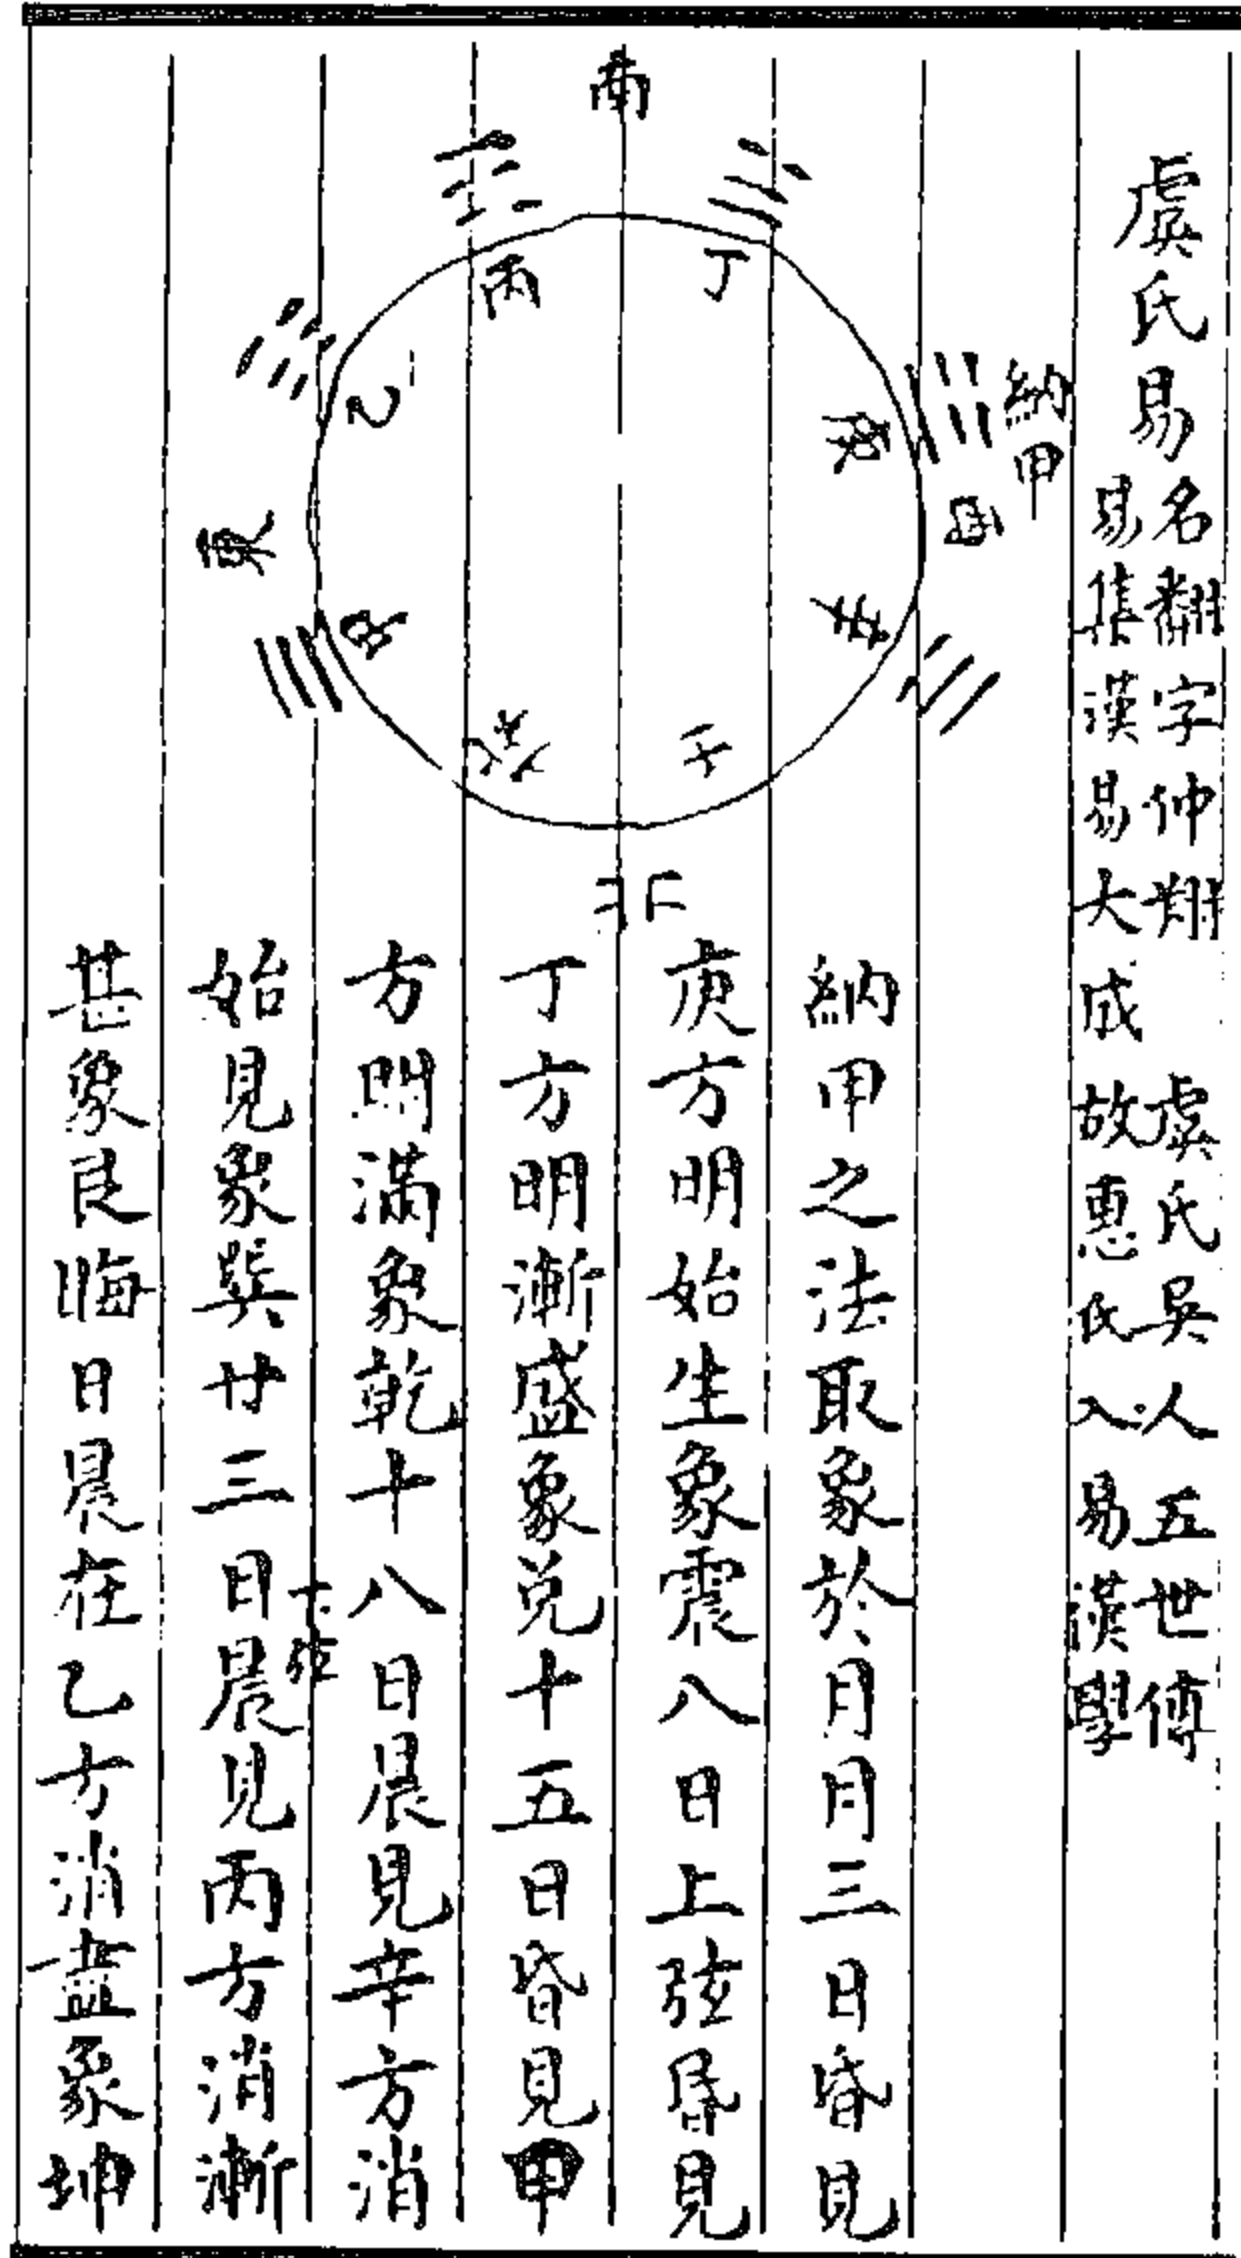 虞氏易
名翻字仲翔 虞氏吳人五世傳
易集漢易大成故惠氏入易漢學
納甲
南
丁
丙
乙
庚
西
辛
東
甲
癸
壬
北
納甲之法取象於月月三日昏見
庚方明始生象震八日上弦昏見
丁方明漸盛象兌十五日昏見甲
方明滿象乾十八日晨見辛方消
始見象巽廿三日下弦晨見丙方消漸
甚象艮晦日晨在乙方消盡象坤